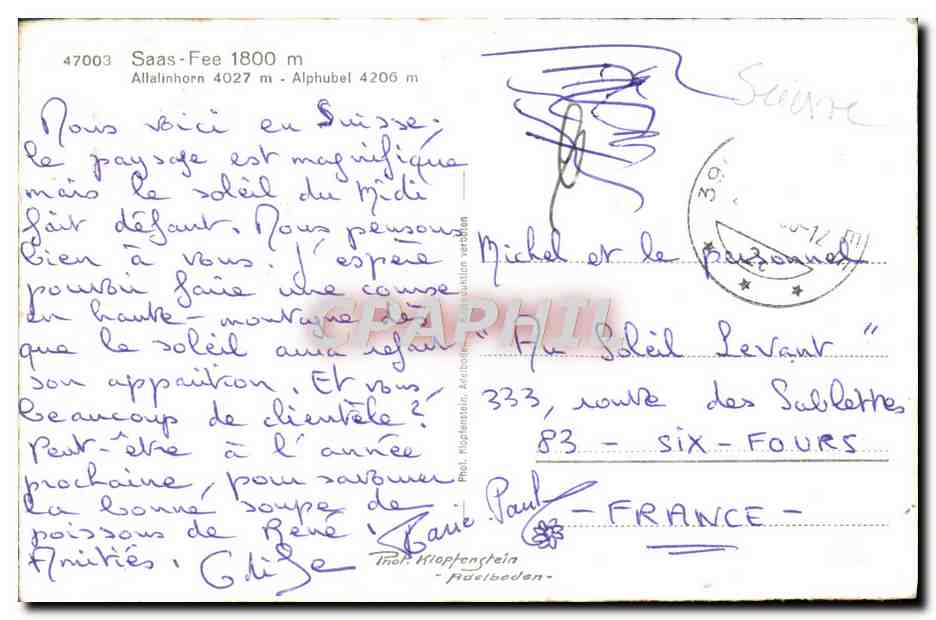 47003 Saas-Fee 1800 m
Allalinhorn 4027 m - Alphubel 4206 m
Nous voici en Suisse.
Le paysage est magnifique
mais le soleil du Midi
fait défaut. Nous pensons
bien à vous. J'espère
pouvoir faire une course
en haute-montagne dès
que le soleil aura refait
son apparition. Et vous,
beaucoup de clientèle?
Peut-être à l'année
prochaine, pour savourer
la bonne soupe de
poissons de René.
Amitiés.
Marie-Paul
Phot. Klopfenstein
- Adelboden -
Phot. Klopfenstein, Adelboden. Reproduktion verboten
Suisse
Michel et le personnel
"Au Soleil Levant"
333, route des Sablettes
83 - SIX-FOURS
- FRANCE -
CPAPHIL